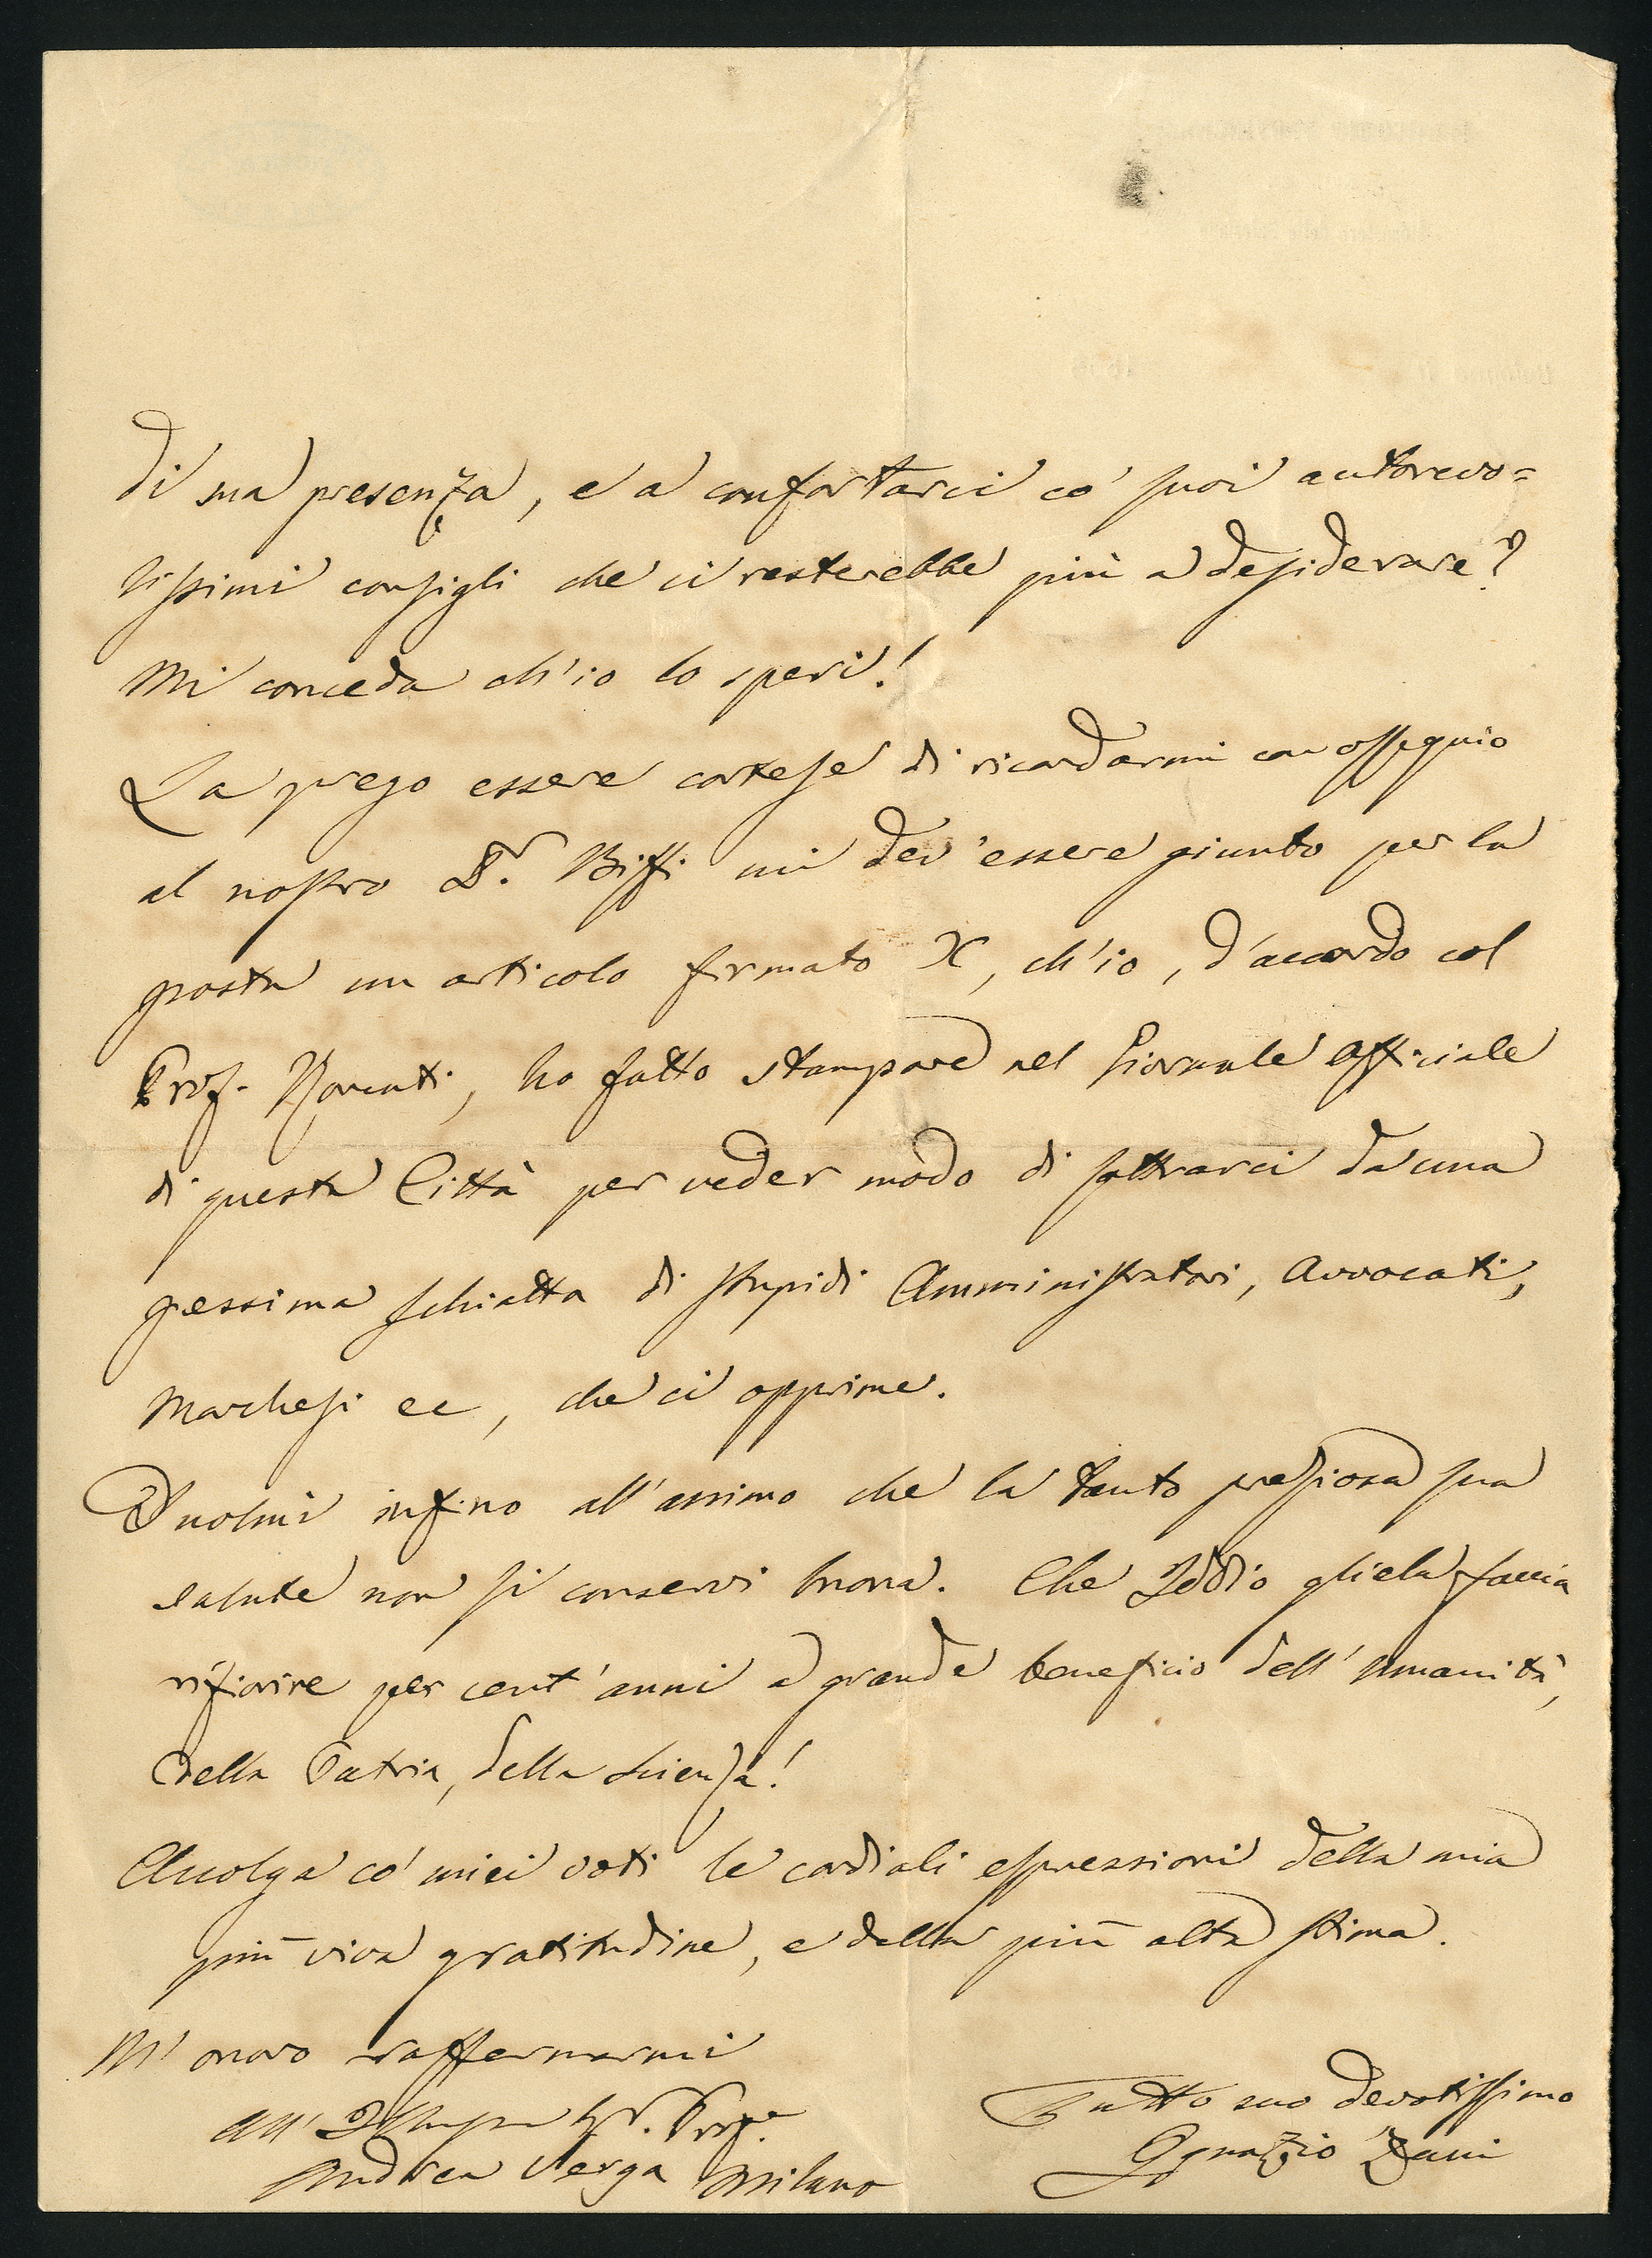 di sua presenza, e a confortarci co' suoi autorevo=
lissimi consigli che ci resterebbe più a desiderare?
Mi conceda ch'io lo speri!
La prego essere cortese di ricordarmi con ossequio
al nostro Dr. Biffi cui dev'essere giunto per la
posta un articolo firmato X, ch'io, d'accordo col
Prof. Roncati, ho fatto stampare nel Giornale Officiale
di questa Città per veder modo di sottrarci da una
pessima schiatta di stupidi Amministratori, Avvocati,
Marchesi ec, che ci opprime.
Duolmi infino all'animo che la tanto preziosa sua
salute non si conservi buona. Che Iddio gliela faccia
rifiorire per cent'anni a grande beneficio dell'umanità,
della Patria, della Scienza!
Accolga co' miei voti le cordiali espressioni della mia
più viva gratitudine, e della più alta stima.
M'onoro raffermarmi
All' Sr. Profe.
Andrea Verga Milano
Tutto suo devotissimo
Ignazio Zani